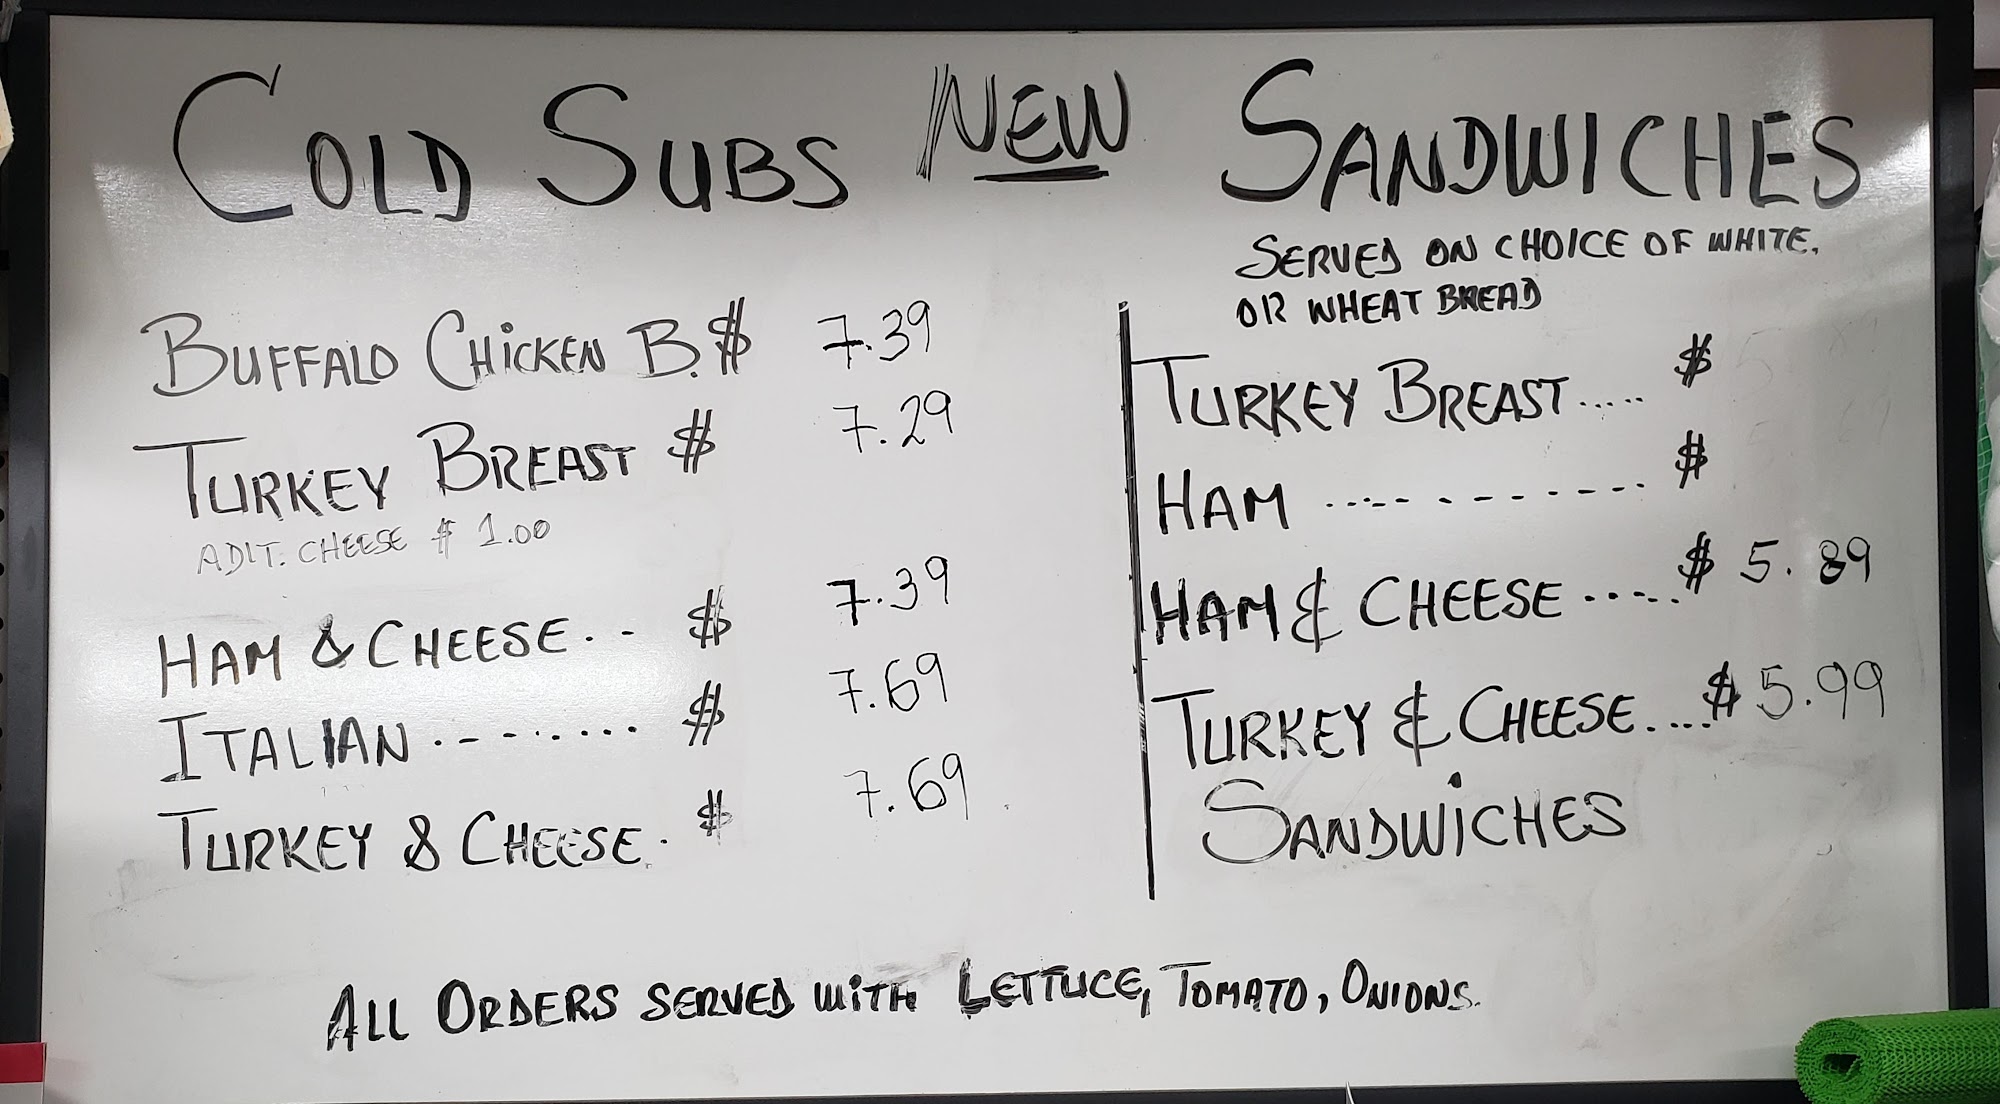 COLD SUBS NEW SANDWICHES
SERVED ON CHOICE OF WHITE.
OR WHEAT BREAD
BUFFALO CHICKEN B. $ 7.39
TURKEY BREAST $ 7.29
ADIT. CHEESE $ 1.00
HAM & CHEESE.. - $ 7.39
ITALIAN ........... $ 7.69
TURKEY & CHEESE. $ 7.69
TURKEY BREAST ..... $
HAM ............. $
HAM & CHEESE ..... $ 5.89
TURKEY & CHEESE.... $ 5.99
SANDWICHES
ALL ORDERS SERVED WITH LETTUCE, TOMATO, ONIONS.